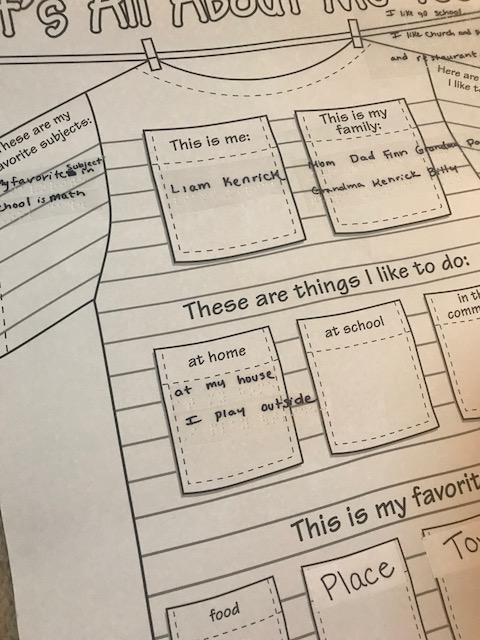 t's All About Me
I like go school
I like church and
and restaurant
Here are
I like t
These are my
favorite subjects:
My favorite Subject in
school is math
This is me:
Liam Kenrick
This is my
family:
Mom Dad Finn Grandma
Grandma Kenrick Betty
These are things I like to do:
at home
at my house
I play outside
at school
in th
comm
This is my favorit
food
Place
To